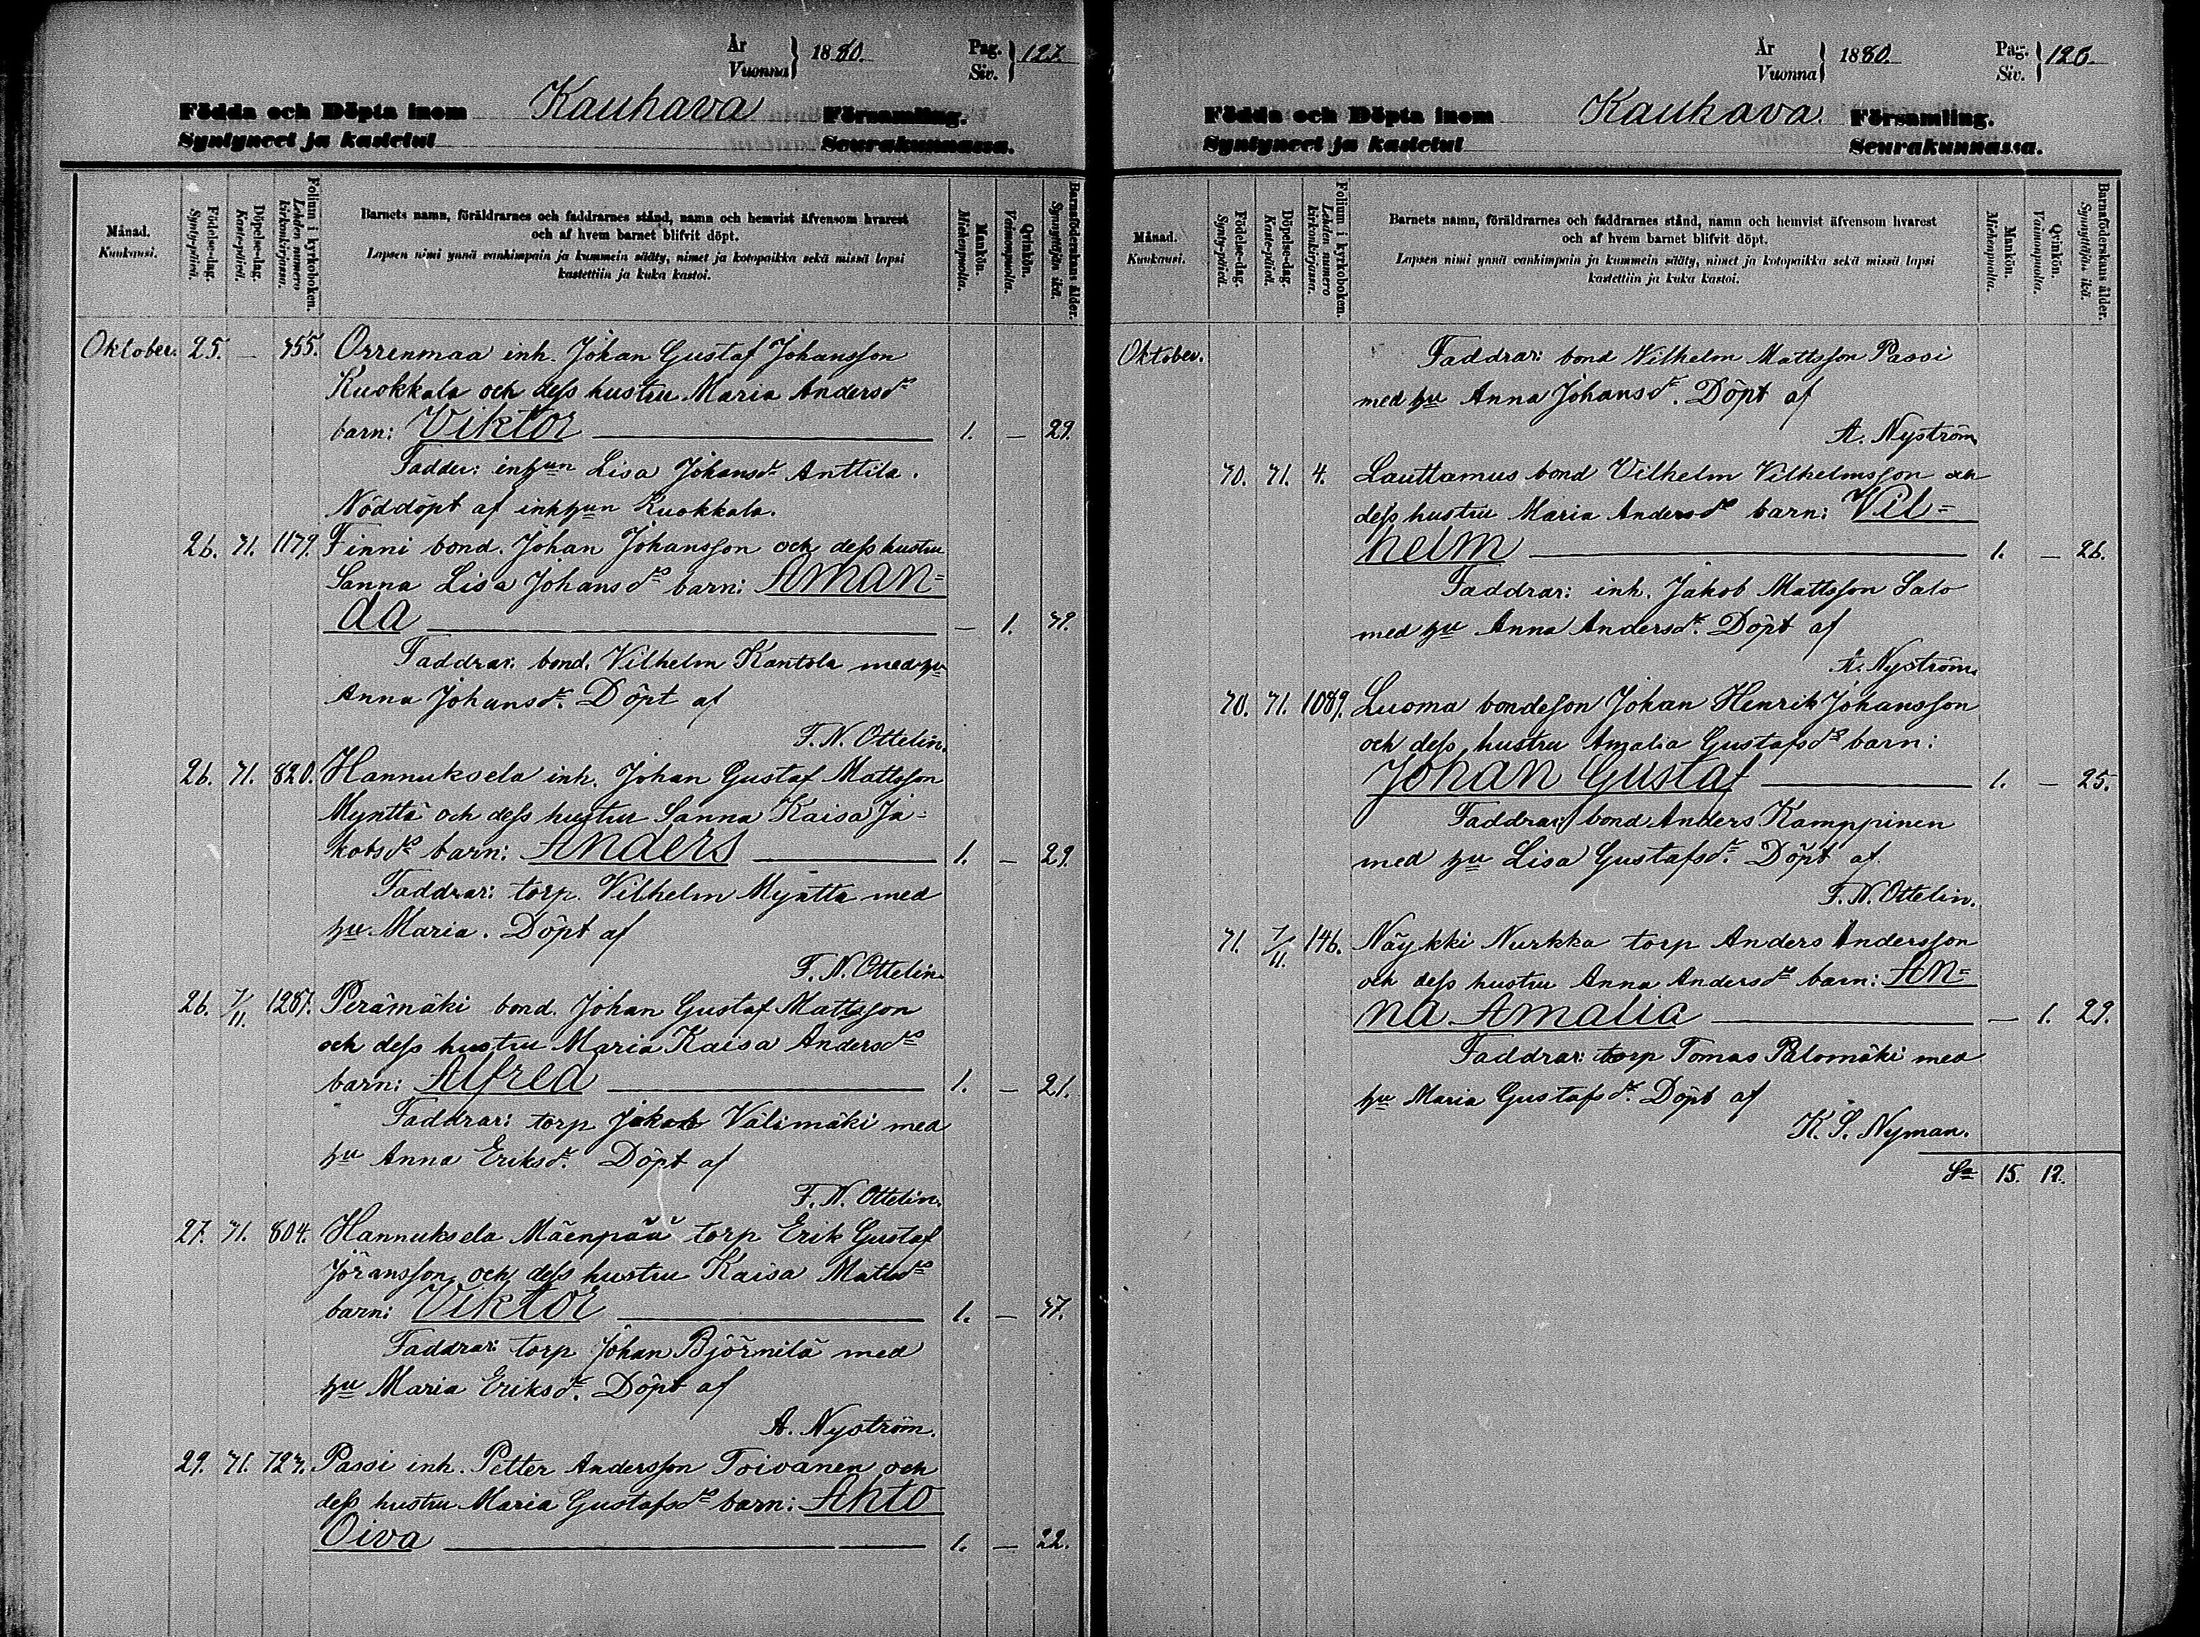 År
Vuonna } 1880. Pag.
Siv. } 127.
Födda och Döpta inom Kauhava Församling.
Syntyneet ja kastetut Seurakunnassa.
Månad.
Kuukausi.
Födelse-dag.
Synty-päivä.
Döpelse-dag.
Kaste-päivä.
Folium i kyrkoboken.
Lehden numero kirkonkirjassa.
Barnets namn, föräldrarnes och faddrarnes stånd, namn och hemvist äfvensom hvarest
och af hvem barnet blifvit döpt.
Lapsen nimi ynnä vanhimpain ja kummein sääty, nimet ja kotopaikka sekä missä lapsi
kastettiin ja kuka kastoi.
Mankön.
Miehenpuolia.
Qvinkön.
Vaimonpuolia.
Barnaföderskans ålder.
Synnyttäjän ikä.
Oktober. 25. — 355. Orrenmaa inh. Johan Gustaf Johansson
Kuokkala och dess hustru Maria Andersdr
barn: Viktor 1. — 29.
Fadder: inhun Lisa Johansdr Anttila.
Nöddöpt af inhhun Kuokkala.
26. 31. 1179. Finni bond. Johan Johansson och dess hustru
Sanna Lisa Johansdr barn: Aman-
da — 1. 39.
Faddrar: bond. Vilhelm Kantola med hu
Anna Johansdr. Döpt af
F. N. Ottelin.
26. 31. 820. Hannuksela inh. Johan Gustaf Mattsson
Mynttä och dess hustru Sanna Kaisa Ja-
kobsdr barn: Anders 1. — 29.
Faddrar: torp. Vilhelm Mynttä med
hu Maria. Döpt af
F. N. Ottelin.
26. 7/11. 1287. Perämäki bond. Johan Gustaf Mattsson
och dess hustru Maria Kaisa Andersdr
barn: Alfred 1. — 21.
Faddrar: torp Jakob Välimäki med
hu Anna Eriksdr. Döpt af
F. N. Ottelin.
27. 31. 804. Hannuksela Mäenpää torp Erik Gustaf
Jöransson och dess hustru Kaisa Mattsdr
barn: Viktor 1. — 37.
Faddrar: torp Johan Björnilä med
hu Maria Eriksdr. Döpt af
A. Nyström.
29. 31. 723. Passi inh. Petter Andersson Toivanen och
dess hustru Maria Gustafsdr barn: Ahto
Oiva 1. — 22.
År
Vuonna } 1880. Pag.
Siv. } 128.
Födda och Döpta inom Kauhava Församling.
Syntyneet ja kastetut Seurakunnassa.
Månad.
Kuukausi.
Födelse-dag.
Synty-päivä.
Döpelse-dag.
Kaste-päivä.
Folium i kyrkoboken.
Lehden numero kirkonkirjassa.
Barnets namn, föräldrarnes och faddrarnes stånd, namn och hemvist äfvensom hvarest
och af hvem barnet blifvit döpt.
Lapsen nimi ynnä vanhimpain ja kummein sääty, nimet ja kotopaikka sekä missä lapsi
kastettiin ja kuka kastoi.
Mankön.
Miehenpuolia.
Qvinkön.
Vaimonpuolia.
Barnaföderskans ålder.
Synnyttäjän ikä.
Oktober. Faddrar: bond Vilhelm Mattsson Passi
med hu Anna Johansdr. Döpt af
A. Nyström
30. 31. 4. Lauttamus bond Vilhelm Vilhelmsson och
dess hustru Maria Andersdr barn: Vil-
helm 1. — 26.
Faddrar: inh. Jakob Mattsson Salo
med hu Anna Andersdr. Döpt af
A. Nyström.
30. 31. 1089. Luoma bondeson Johan Henrik Johansson
och dess hustru Amalia Gustafsdr barn:
Johan Gustaf 1. — 25.
Faddrar: bond Anders Kamppinen
med hu Lisa Gustafsdr. Döpt af
F. N. Ottelin.
31. 7/11. 146. Näykki Nurkka torp Anders Andersson
och dess hustru Anna Andersdr barn: An-
na Amalia — 1. 29.
Faddrar: torp Tomas Palomäki med
hu Maria Gustafsdr. Döpt af
K. S. Nyman.
Sa 15. 12.